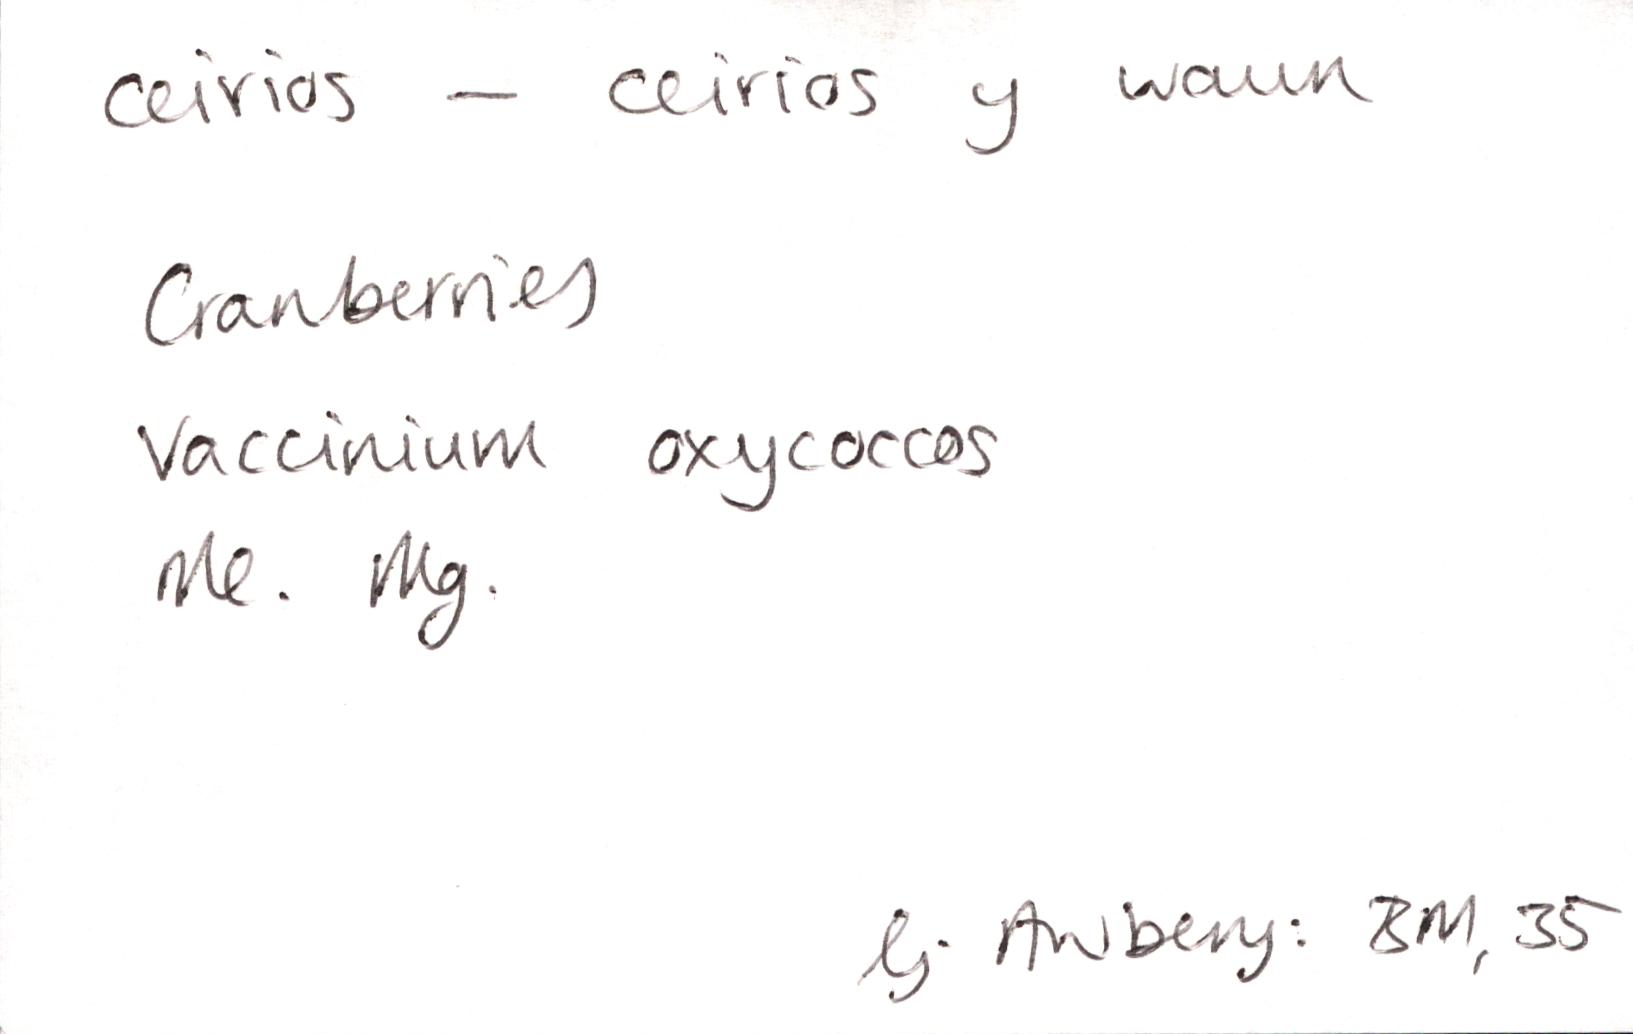 ceirios – ceirios y waun
Cranberries
Vaccinium oxycoccos
Me. Mg.
G. Awbery: BM, 35